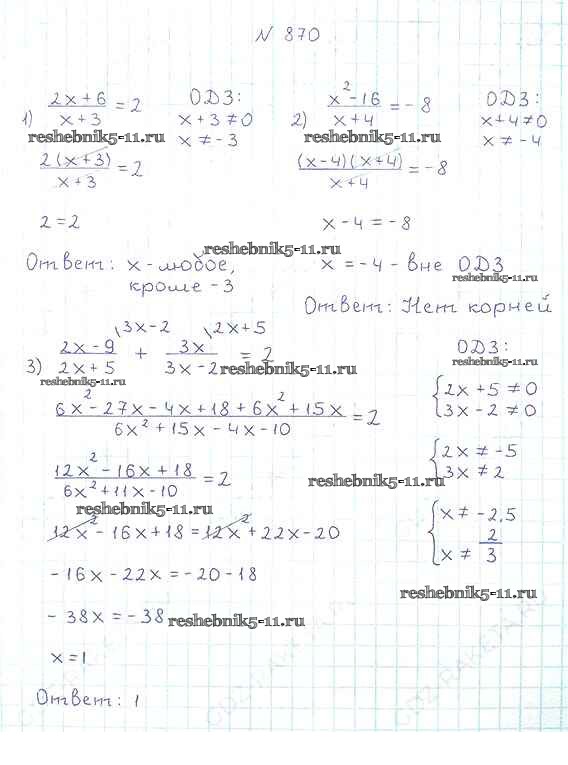 N 870
1) (2x+6)/(x+3) = 2
ОДЗ:
x+3≠0
x ≠ -3
reshebnik5-11.ru
2(x+3)/(x+3) = 2
2=2
Ответ: x - любое,
кроме -3
2) (x²-16)/(x+4) = -8
ОДЗ:
x+4≠0
x ≠ -4
reshebnik5-11.ru
(x-4)(x+4)/(x+4) = -8
x-4=-8
reshebnik5-11.ru
x=-4 - вне ОДЗ
reshebnik5-11.ru
Ответ: Нет корней
3) (2x-9)/(2x+5) \3x-2 + 3x/(3x-2) \2x+5 = 2
reshebnik5-11.ru
reshebnik5-11.ru
ОДЗ:
reshebnik5-11.ru
{2x+5≠0
3x-2≠0
{2x≠-5
3x≠2
{x≠-2,5
x≠2/3
reshebnik5-11.ru
(6x²-27x-4x+18+6x²+15x)/(6x²+15x-4x-10) = 2
(12x²-16x+18)/(6x²+11x-10) = 2
reshebnik5-11.ru
reshebnik5-11.ru
12x²-16x+18=12x²+22x-20
-16x-22x=-20-18
-38x=-38
reshebnik5-11.ru
x=1
Ответ: 1